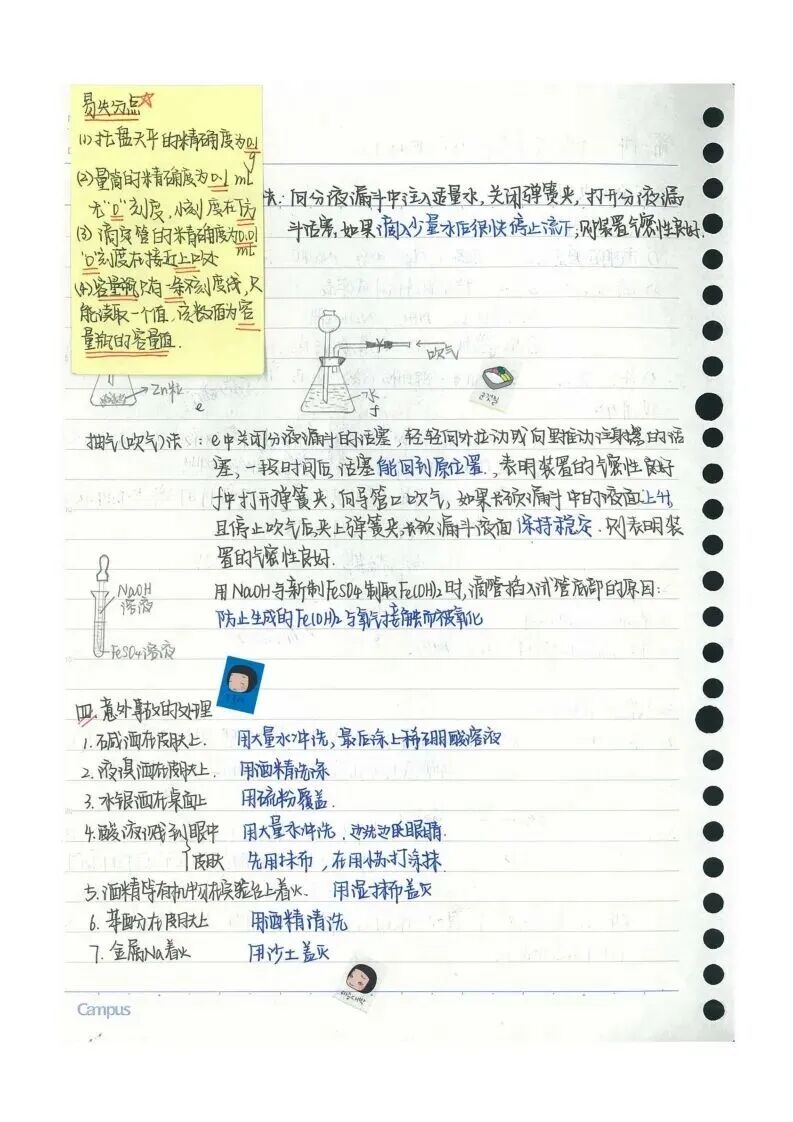 易失分点
(1) 托盘天平的精确度为0.1
g
(2) 量筒的精确度为0.1 mL
无"0"刻度,小刻度在下方
(3) 滴定管的精确度为0.01
mL
"0"刻度在接近上口处
(4) 容量瓶只有一条刻度线,只
能读取一个值,该数值为容
量瓶的容量值.
法:向分液漏斗中注入适量水,关闭弹簧夹,打开分液漏
斗活塞,如果滴入少量水后很快停止流下,则装置气密性良好.
吹气
Zn粒
水
e
f
抽气(吹气)法:e中关闭分液漏斗的活塞,轻轻向外拉动或向里推动注射器的活
塞,一段时间后,活塞能回到原位置,表明装置的气密性良好
f中打开弹簧夹,向导管口吹气,如果长颈漏斗中的液面上升,
且停止吹气后,夹上弹簧夹,长颈漏斗液面保持稳定.则表明装
置的气密性良好.
NaOH
溶液
FeSO4溶液
用NaOH与新制FeSO4制取Fe(OH)2时,滴管插入试管底部的原因:
防止生成的Fe(OH)2与氧气接触而被氧化
四.意外事故的处理
1.碱洒在皮肤上. 用大量水冲洗,最后涂上稀硼酸溶液
2.液溴洒在皮肤上. 用酒精洗涤
3.水银洒在桌面上 用硫粉覆盖.
4.酸液溅到眼中 用大量水冲洗,边洗边眨眼睛.
皮肤 先用抹布,在用
5.酒精等有机物在实验台上着火. 用湿抹布盖灭
6.苯酚分在皮肤上 用酒精清洗
7.金属Na着火 用沙土盖灭
Campus